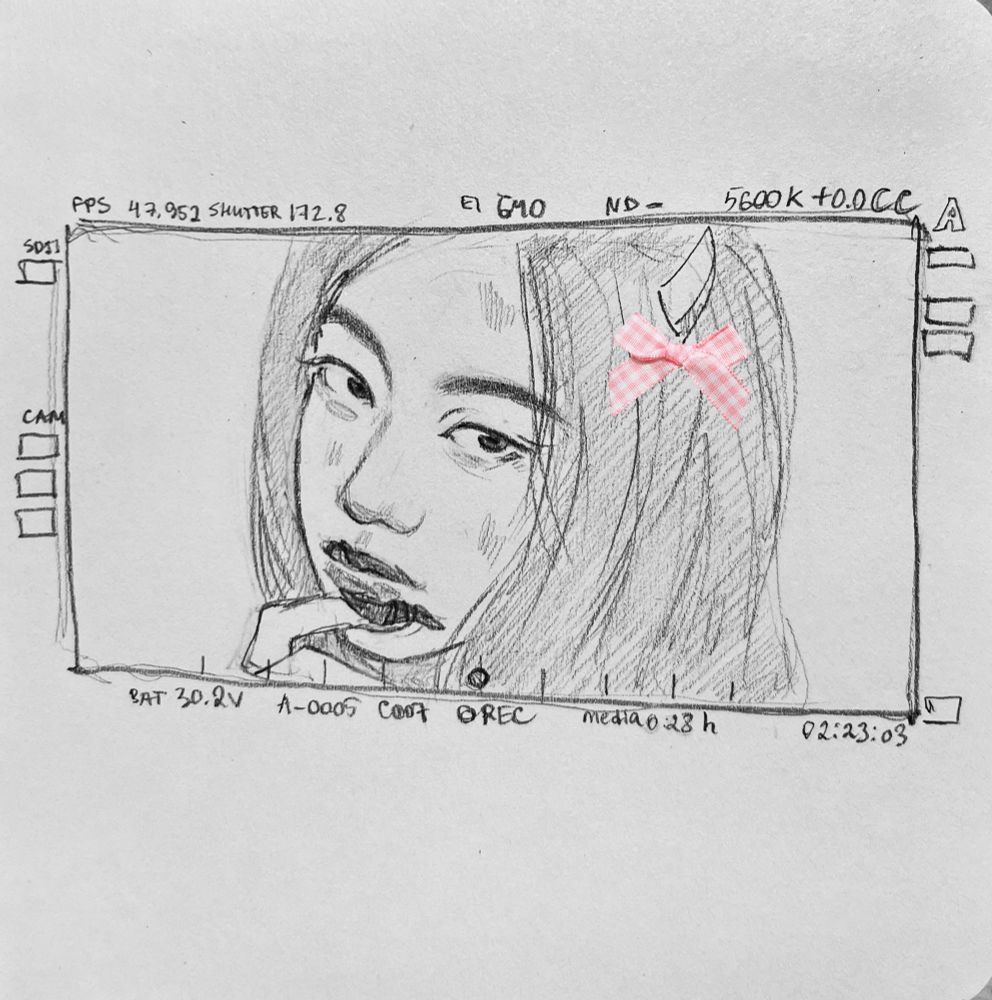 FPS 47.952 SHUTTER 172.8 EI 640 ND- 5600K +0.0CC
A
SDI1
CAM
BAT 30.2V A-0005 C007 REC media 0:28 h 02:23:03